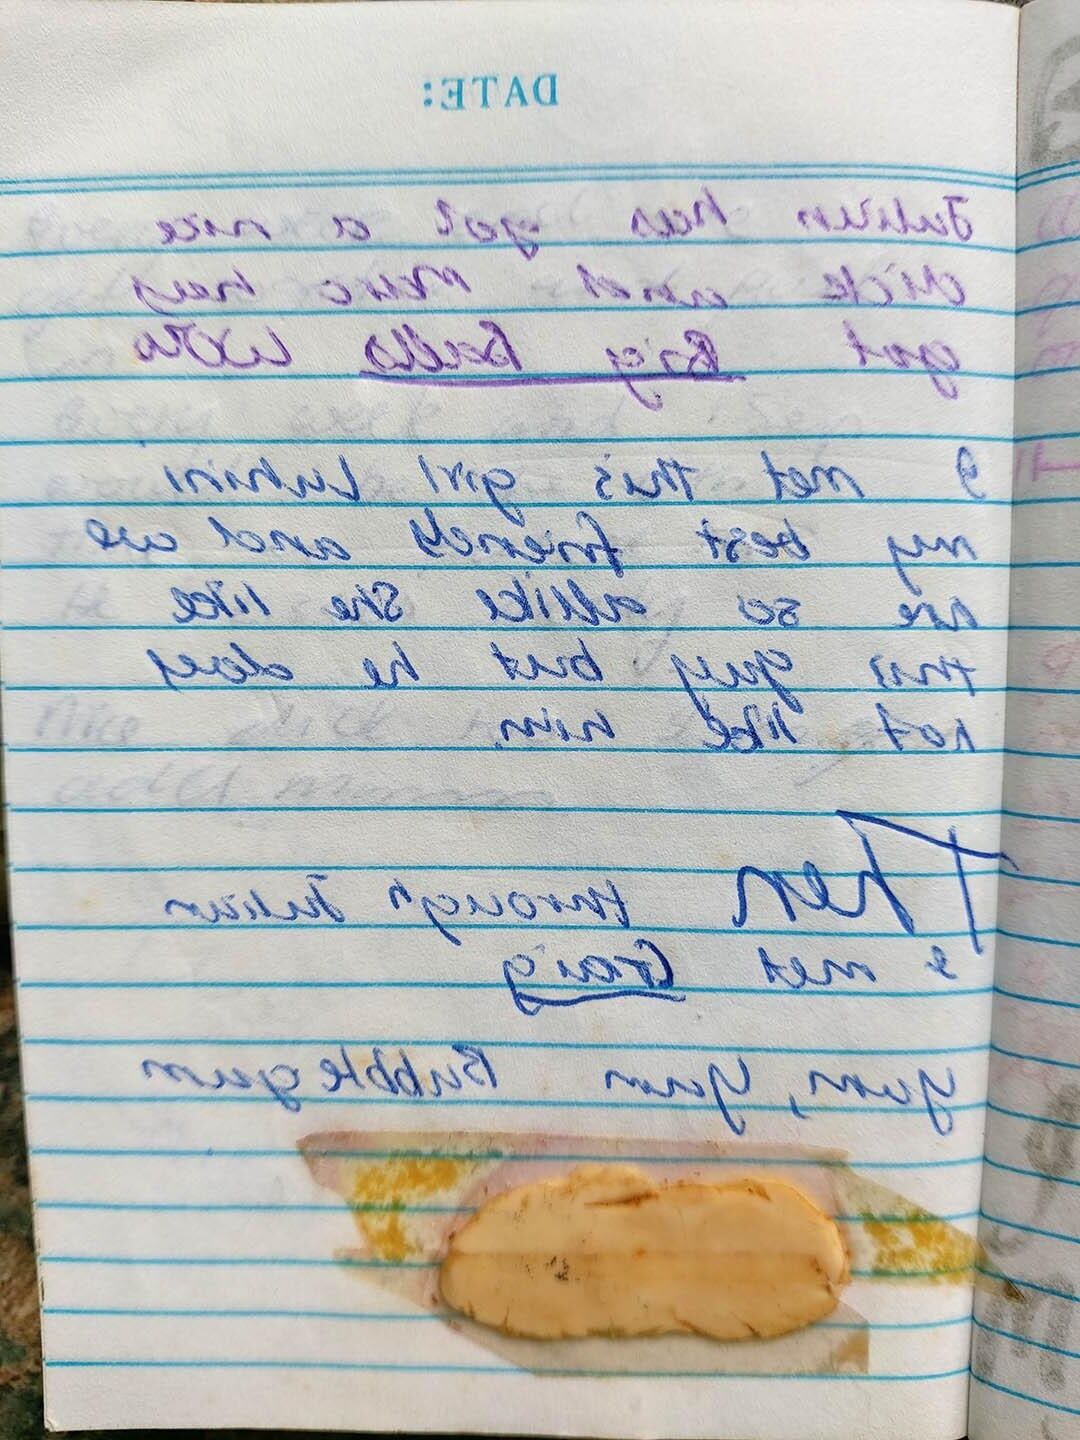 DATE:
Julian has got a nice
dick and Marc hay
got Big Balls WOW
I met this girl Luhini
my best friends and we
are so alike She like
this guy but he does
not like him.
Then through Julian
I met Craig
Yum, Yum Bubblegum